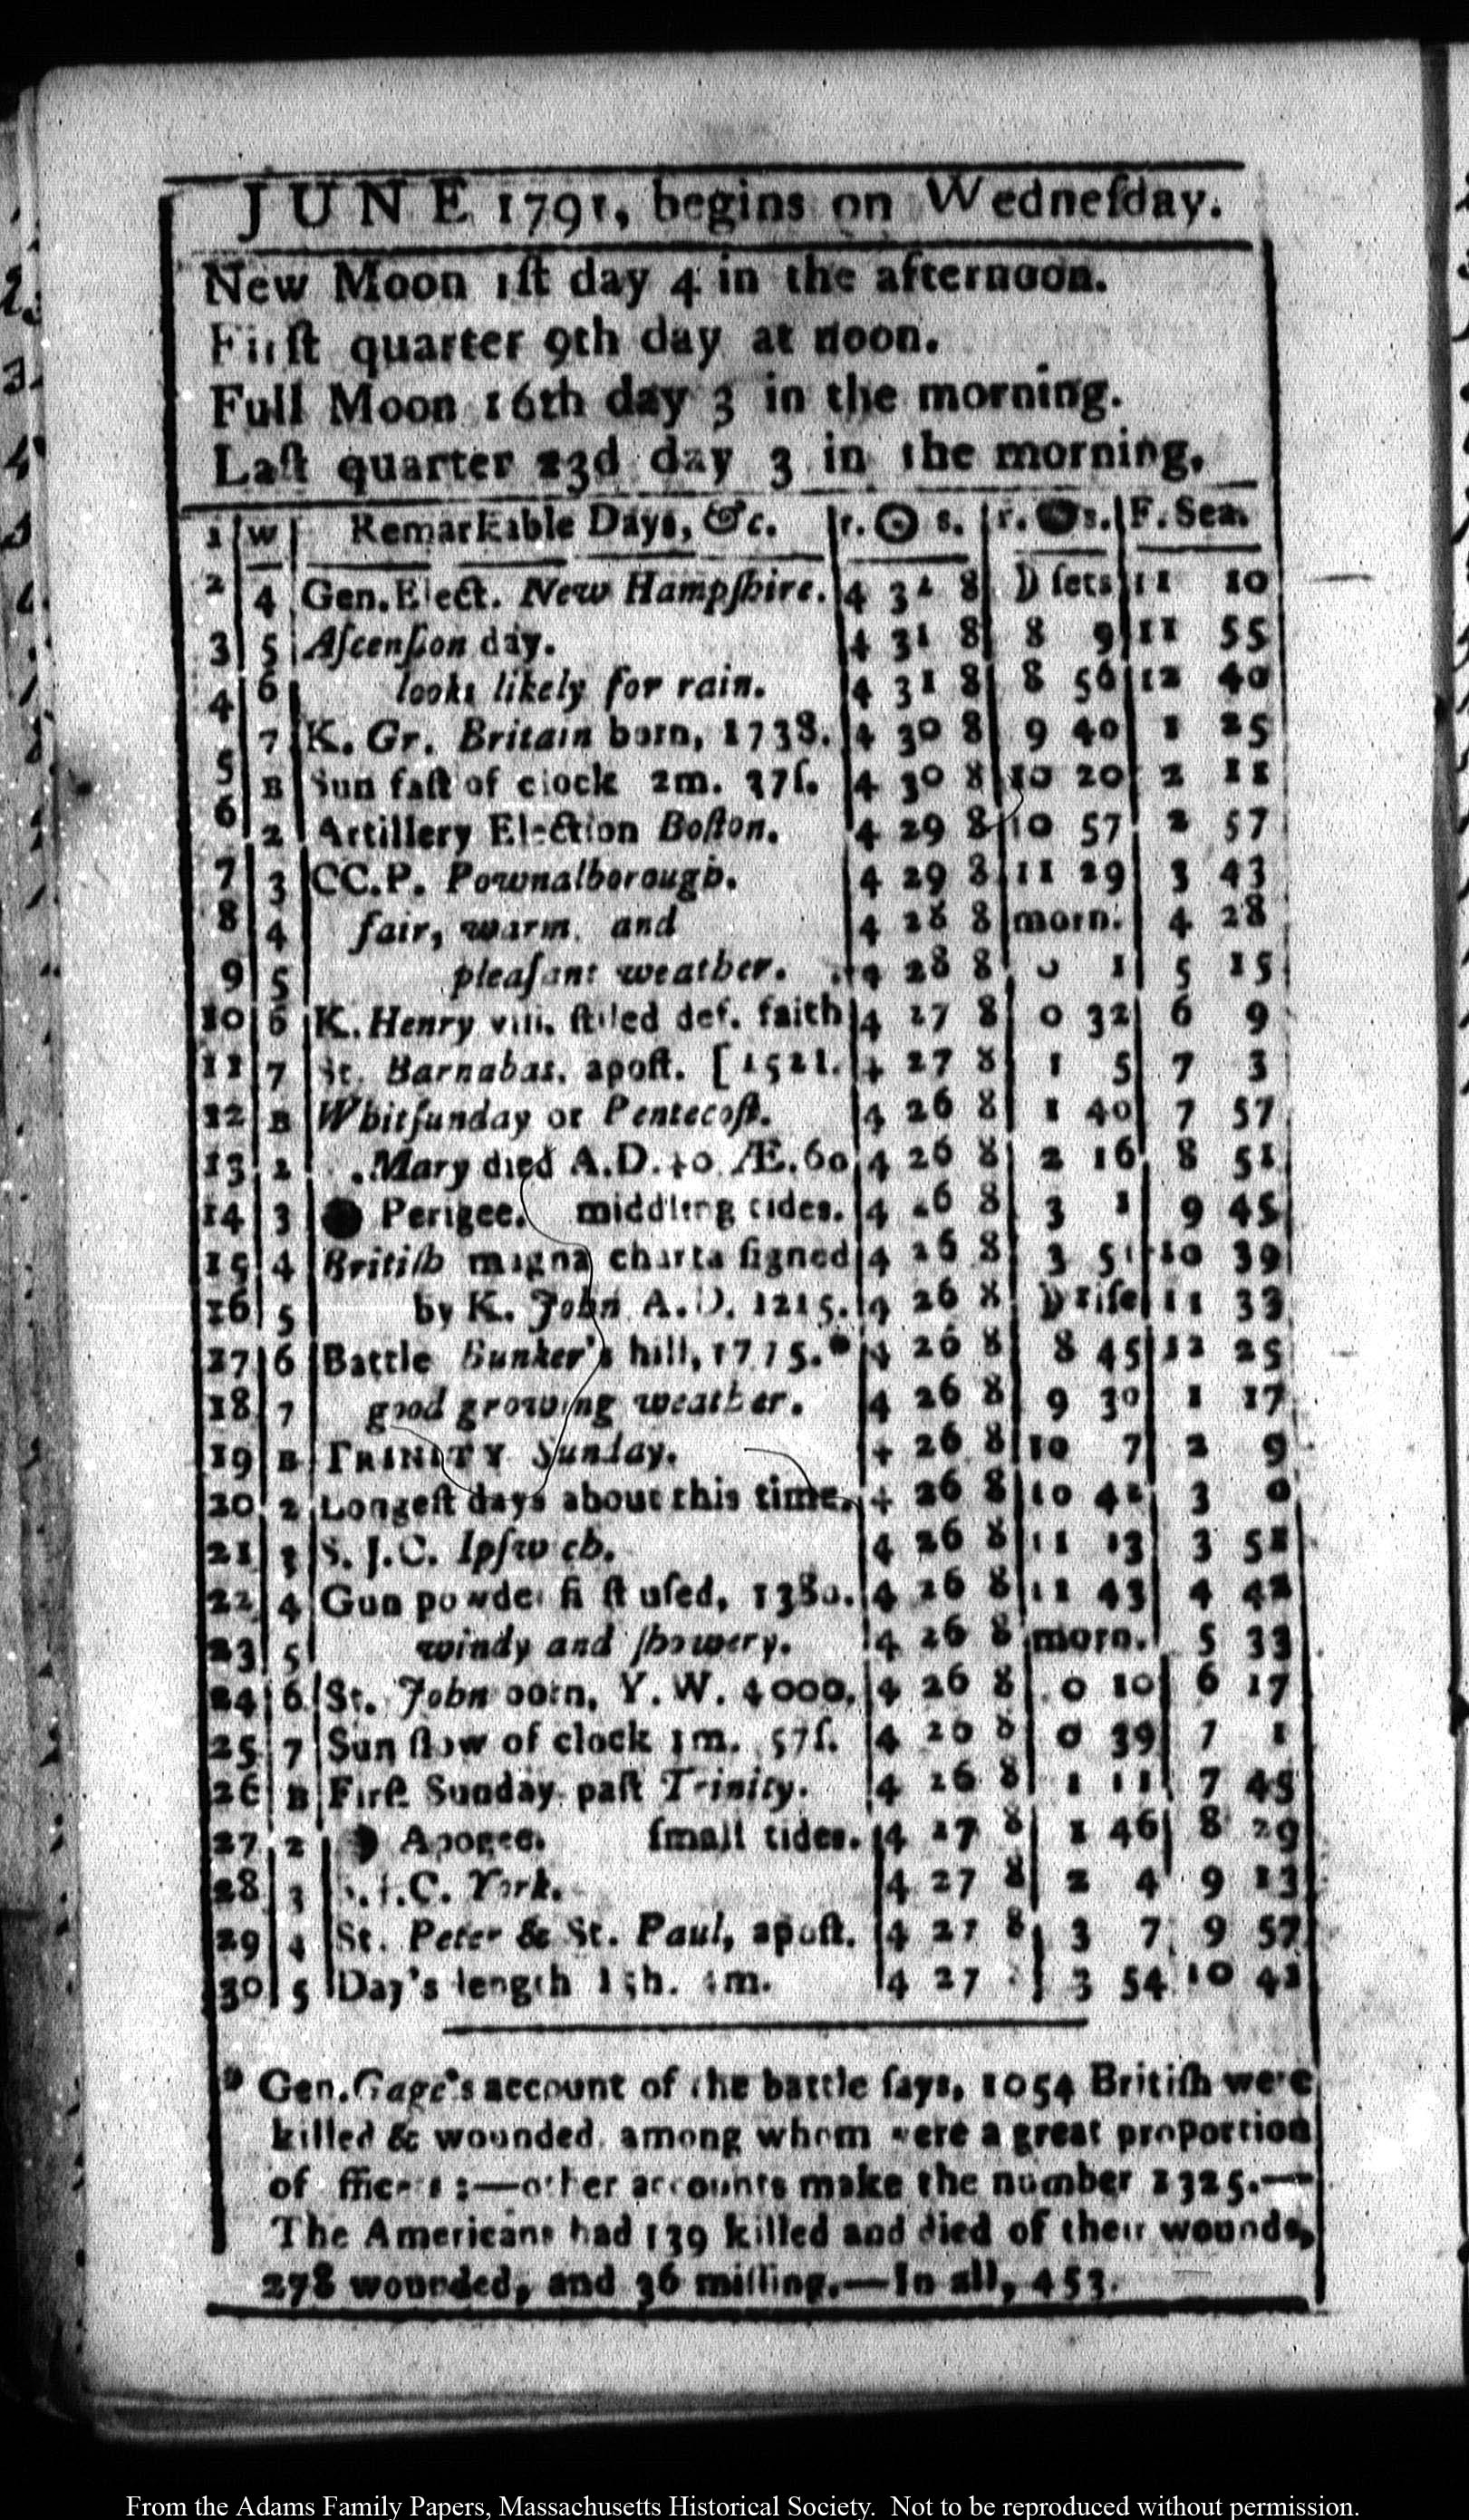 JUNE 1791, begins on Wedneſday.
New Moon 1ſt day 4 in the afternoon.
Firſt quarter 9th day at noon.
Full Moon 16th day 3 in the morning.
Laſt quarter 23d day 3 in the morning.
1 w Remarkable Days, &c. r. ☉ s. r. ●s. F. Sea.
2 4 Gen. Elect. New Hampſhire. 4 32 8 ☽ ſets 11 10
3 5 Aſcenſion day. 4 31 8 8 9 11 55
4 6 looks likely for rain. 4 31 8 8 56 12 40
7 K. Gr. Britain born, 1738. 4 30 8 9 40 1 25
5 B Sun faſt of clock 2m. 37ſ. 4 30 8 10 20 2 11
6 2 Artillery Election Boſton. 4 29 8 10 57 2 57
7 3 CC.P. Pownalborough. 4 29 8 11 29 3 43
8 4 fair, warm, and 4 28 8 morn. 4 28
9 5 pleaſant weather. 4 28 8 0 1 5 15
10 6 K. Henry viii. ſtiled def. faith 4 27 8 0 32 6 9
11 7 St. Barnabas, apoſt. [1521. 4 27 8 1 5 7 3
12 B Whitſunday or Pentecoſt. 4 26 8 1 40 7 57
13 2 Mary died A.D. 40 Æ. 60 4 26 8 2 16 8 51
14 3 ● Perigee. middling tides. 4 26 8 3 1 9 45
15 4 Britiſh magna charta ſigned 4 26 8 3 51 10 39
16 5 by K. John A.D. 1215. 4 26 8 ☽ riſe 11 33
17 6 Battle Bunker's hill, 1775.* 4 26 8 8 45 12 25
18 7 good growing weather. 4 26 8 9 30 1 17
19 B TRINITY Sunday. 4 26 8 10 7 2 9
20 2 Longeſt days about this time. 4 26 8 10 42 3 0
21 3 S.J.C. Ipſwich. 4 26 8 11 13 3 51
22 4 Gun powder firſt uſed, 1380. 4 26 8 11 43 4 42
23 5 windy and ſhowery. 4 26 8 morn. 5 33
24 6 St. John born, Y. W. 4000. 4 26 8 0 10 6 17
25 7 Sun ſlow of clock 1m. 57ſ. 4 26 8 0 39 7 1
26 B Firſt Sunday paſt Trinity. 4 26 8 1 11 7 45
27 2 ☽ Apogee. ſmall tides. 4 27 8 1 46 8 29
28 3 S.J.C. York. 4 27 8 2 4 9 13
29 4 St. Peter & St. Paul, apoſt. 4 27 8 3 7 9 57
30 5 Day's length 15h. m. 4 27 3 54 10 41
* Gen. Gage's account of the battle ſays, 1054 Britiſh were
killed & wounded, among whom were a great proportion
of officers :—other accounts make the number 1325.—
The Americans had 139 killed and died of their wounds,
278 wounded, and 36 miſſing.—In all, 453.
From the Adams Family Papers, Massachusetts Historical Society. Not to be reproduced without permission.